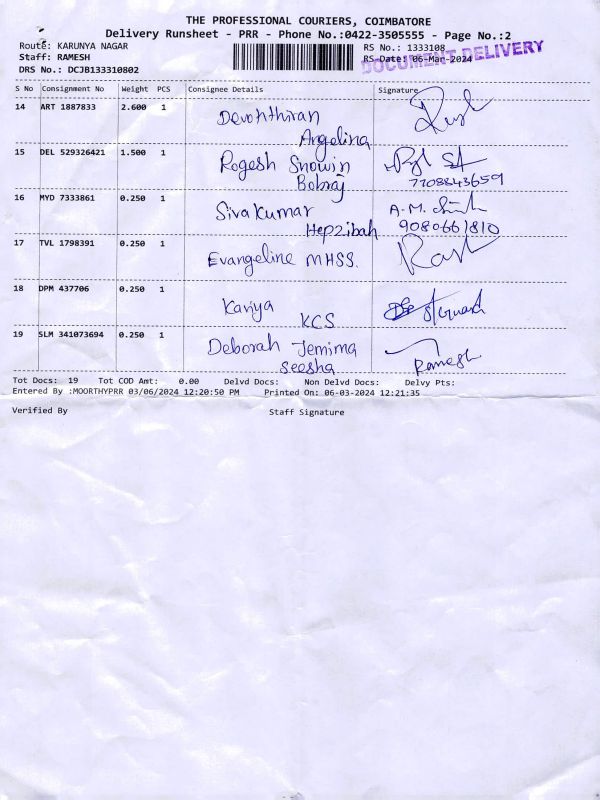 THE PROFESSIONAL COURIERS, COIMBATORE
Delivery Runsheet - PRR - Phone No.:0422-3505555 - Page No.:2
Route: KARUNYA NAGAR
RS No.: 1333108
Staff: RAMESH
RS Date: 06-Mar-2024
DOCUMENT DELIVERY
DRS No.: DCJB133310802
S No Consignment No Weight PCS Consignee Details Signature
14 ART 1887833 2.600 1 Devohthiran
Angelina
15 DEL 529326421 1.500 1 Rogesh Snowin
Bobraj
7708843659
16 MYD 7333861 0.250 1 Sivakumar A.M.
Hepzibah 9080661810
17 TVL 1798391 0.250 1 Evangeline MHSS.
18 DPM 437706 0.250 1 Kaviya
KCS
19 SLM 341073694 0.250 1 Deborah Jemima
Seesha Ramesh
Tot Docs: 19 Tot COD Amt: 0.00 Delvd Docs: Non Delvd Docs: Delvy Pts:
Entered By :MOORTHYPRR 03/06/2024 12:20:50 PM Printed On: 06-03-2024 12:21:35
Verified By Staff Signature